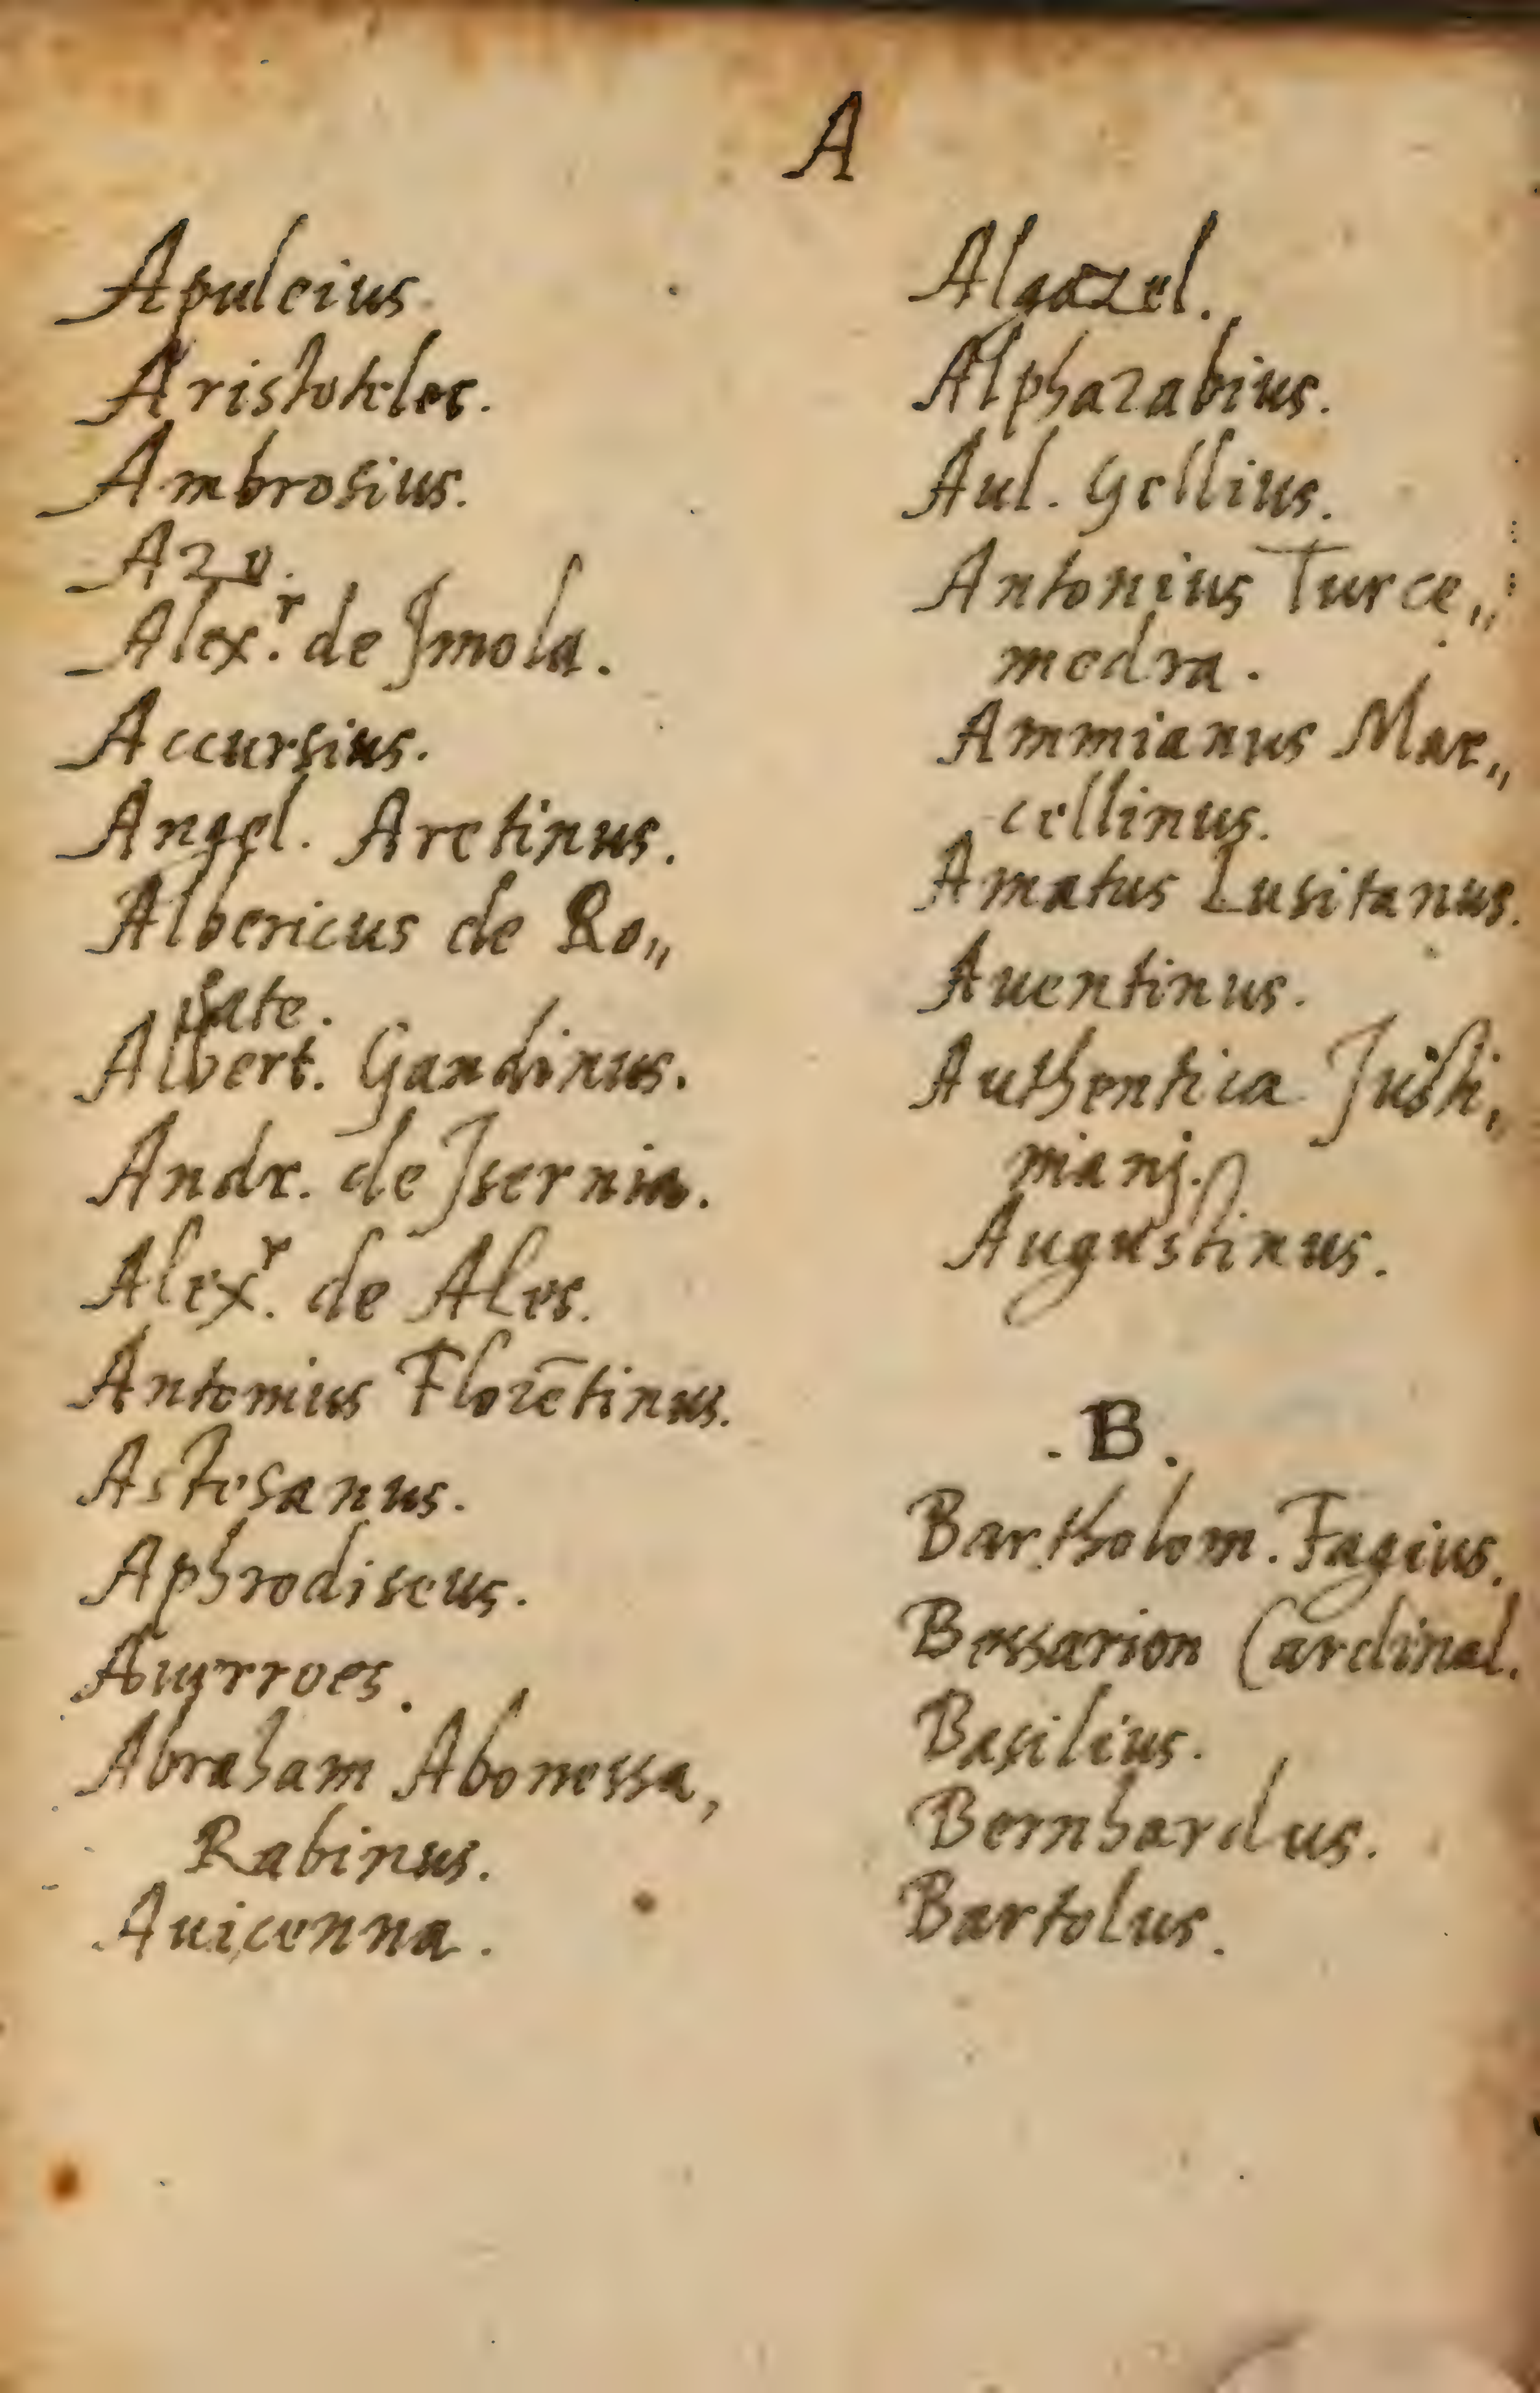 A
Apuleius.
Aristoteles.
Ambrosius.
Azo.
Alex.r de Jmola.
Accursius.
Angel. Aretinus.
Albericus de Ro„
sate.
Albert. Gandinus.
Andr. de Jsernia.
Alex.r de Ales.
Antonius Florētinus.
Astesanus.
Aphrodiseus.
Auerroes.
Abraham Abonessa,
Rabinus.
Auicenna.
Algazel.
Alpharabius.
Aul. Gellius.
Antonius Turce„
medra.
Ammianus Mar„
cellinus.
Amatus Lusitanus.
Auentinus.
Authentica Justi„
nianj.
Augustinus.
.B.
Bartholom. Fagius.
Bessarion Cardinal.
Basilius.
Bernhardus.
Bartolus.